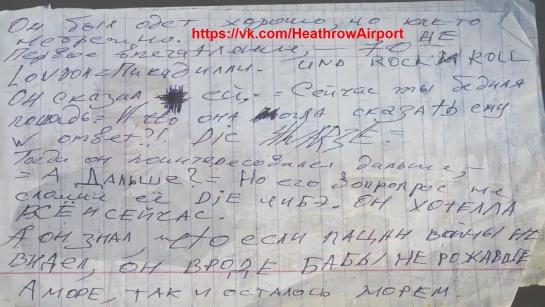 Он был одет хорошо, но как-то
небрежно. https://vk.com/HeathrowAirport
Первое впечатление, – то НЕ
LONDON = Пикадилли. UND ROCK'N ROLL
Он сказал ей, = Сейчас ты бедная
лошадь = И что она могла сказать ему
в ответ?! DIE
Тогда он поинтересовался дальше, –
= А Дальше? = Но его вопропрос не
сломил её DIE ОН ХОТЕЛЛА
ВСЁ И СЕЙЧАС.
А ОН ЗНАЛ, ЧТО ЕСЛИ ПАЦАН ВОЙНЫ НЕ
ВИДЕЛ, ОН ВРОДЕ БАБЫ НЕ РОЖАВШЕ
А МОРЕ, ТАК И ОСТАЛОСЬ МОРЕМ